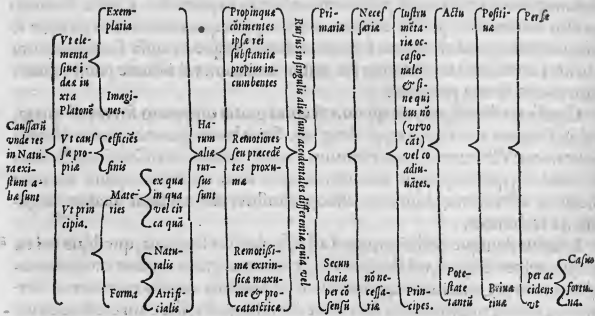 Caussarũ
vnde res
in Natu
ra exi-
stunt a-
liæ sunt
Vt ele-
menta
siue i-
deæ iu
xta
Platonẽ
Exem-
plaria
Imagi-
nes.
Vt caus
sæ pro-
priæ
efficiẽs
finis
Vt prin
cipia.
Mate-
ries
ex qua
in qua
vel cir
ca quã
Forma
Natu-
ralis
Artifi-
cialis
Ha-
rum
aliæ
rur-
sus
sunt
Propinquæ
cõtinentes
ipsæ rei
substantiæ
propius in-
cumbentes
Remotiores
seu præcedẽ
tes proxu-
mæ
Remotißi-
mæ extrin-
sicæ maxu-
me & pro-
catarcticæ
Rursus in singulis aliæ sunt accidentales differentiæ quia vel
Pri-
mariæ
Secun
dariæ
per cõ
sensũ
Neces
sariæ
nõ ne-
cessa-
riæ
Instru
mẽta-
riæ oc-
casio-
nales
& si-
ne qui
bus nõ
(vt vo
cãt)
vel co
adiu-
uãtes.
Prin-
cipes.
Actu
Pote-
state
tantũ
Positi-
uæ
Priua
tiuæ
Per se
per ac
cidens
vt
Casus
fortu-
na.